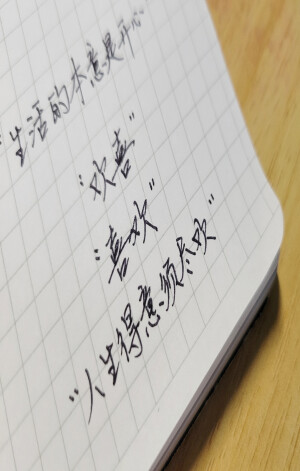 "生活的本意是开心
"欢喜"
"喜欢"
"人生得意须尽欢"